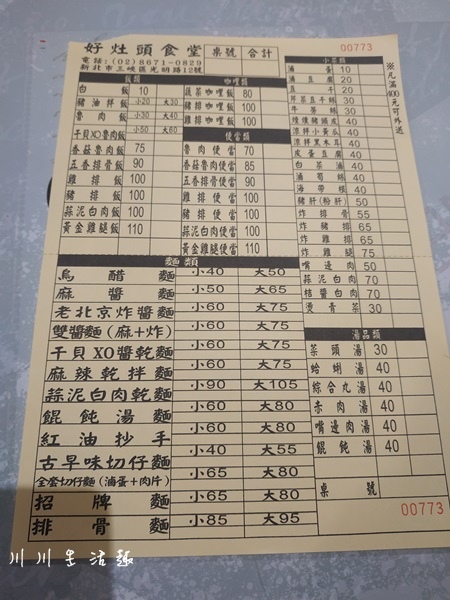 好灶頭食堂
桌號 合計
電話:(02)8671-0829
新北市三峽區光明路12號
00773
※凡滿400元可外送
飯類
白飯 10
豬油拌飯 小20 大30
魯肉飯 小30 大40
干貝XO魯肉飯 小50 大60
香菇魯肉飯 75
五香排骨飯 90
雞排飯 100
豬排飯 100
蒜泥白肉飯 110
黃金雞腿飯 110
咖哩類
蔬菜咖哩飯 80
雞排咖哩飯 100
豬排咖哩飯 100
便當類
魯肉便當 70
香菇魯肉便當 85
五香排骨便當 90
雞排便當 100
豬排便當 100
蒜泥白肉便當 100
黃金雞腿便當 110
小菜類
滷蛋 10
滷豆腐 20
豆干 20
芹菜豆干絲 30
牛蒡絲 30
涼拌小黃瓜 40
涼拌黑木耳 40
皮蛋豆腐 40
白菜滷 40
滷筍絲 40
海帶根 40
豬肝(粉肝) 50
炸排骨 55
炸豬排 65
炸雞排 65
炸雞腿 75
嘴邊肉 50
蒜泥白肉 70
桔醬白肉 70
燙青菜 30
麵類
烏醋麵 小40 大50
麻醬麵 小50 大65
老北京炸醬麵 小60 大75
雙醬麵(麻+炸) 小60 大75
干貝XO醬乾麵 小60 大75
麻辣乾拌麵 小60 大75
蒜泥白肉乾麵 小90 大105
餛飩湯麵 小60 大80
紅油抄手 小60 大80
古早味切仔麵 小40 大55
全套切仔麵(滷蛋+肉片) 小65 大80
招牌麵 小65 大80
排骨麵 小85 大95
湯品類
菜頭湯 30
蛤蜊湯 40
綜合丸湯 40
赤肉湯 40
嘴邊肉湯 40
餛飩湯 40
桌號
00773
川川生活趣